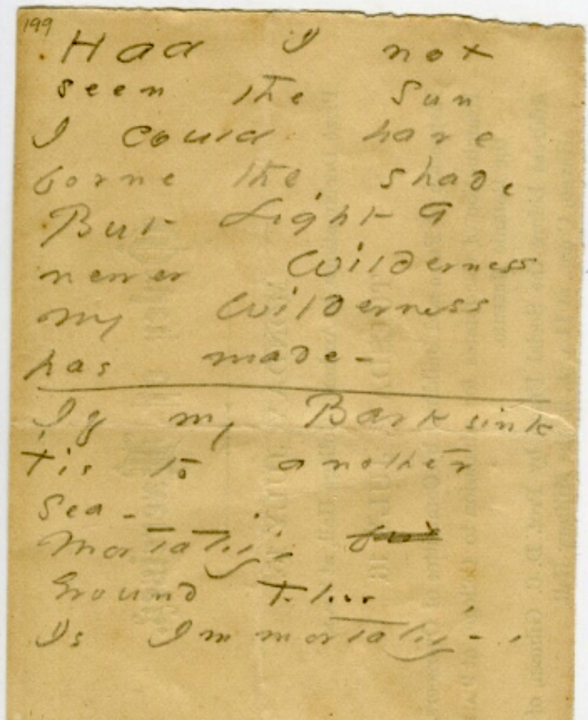 199
Had I not
seen the Sun
I could have
borne the shade
But Light a
newer Wilderness
my Wilderness
has made-
If my Bark sink
tis to another
Sea-
Mortality's
Ground Floor
Is Immortality-